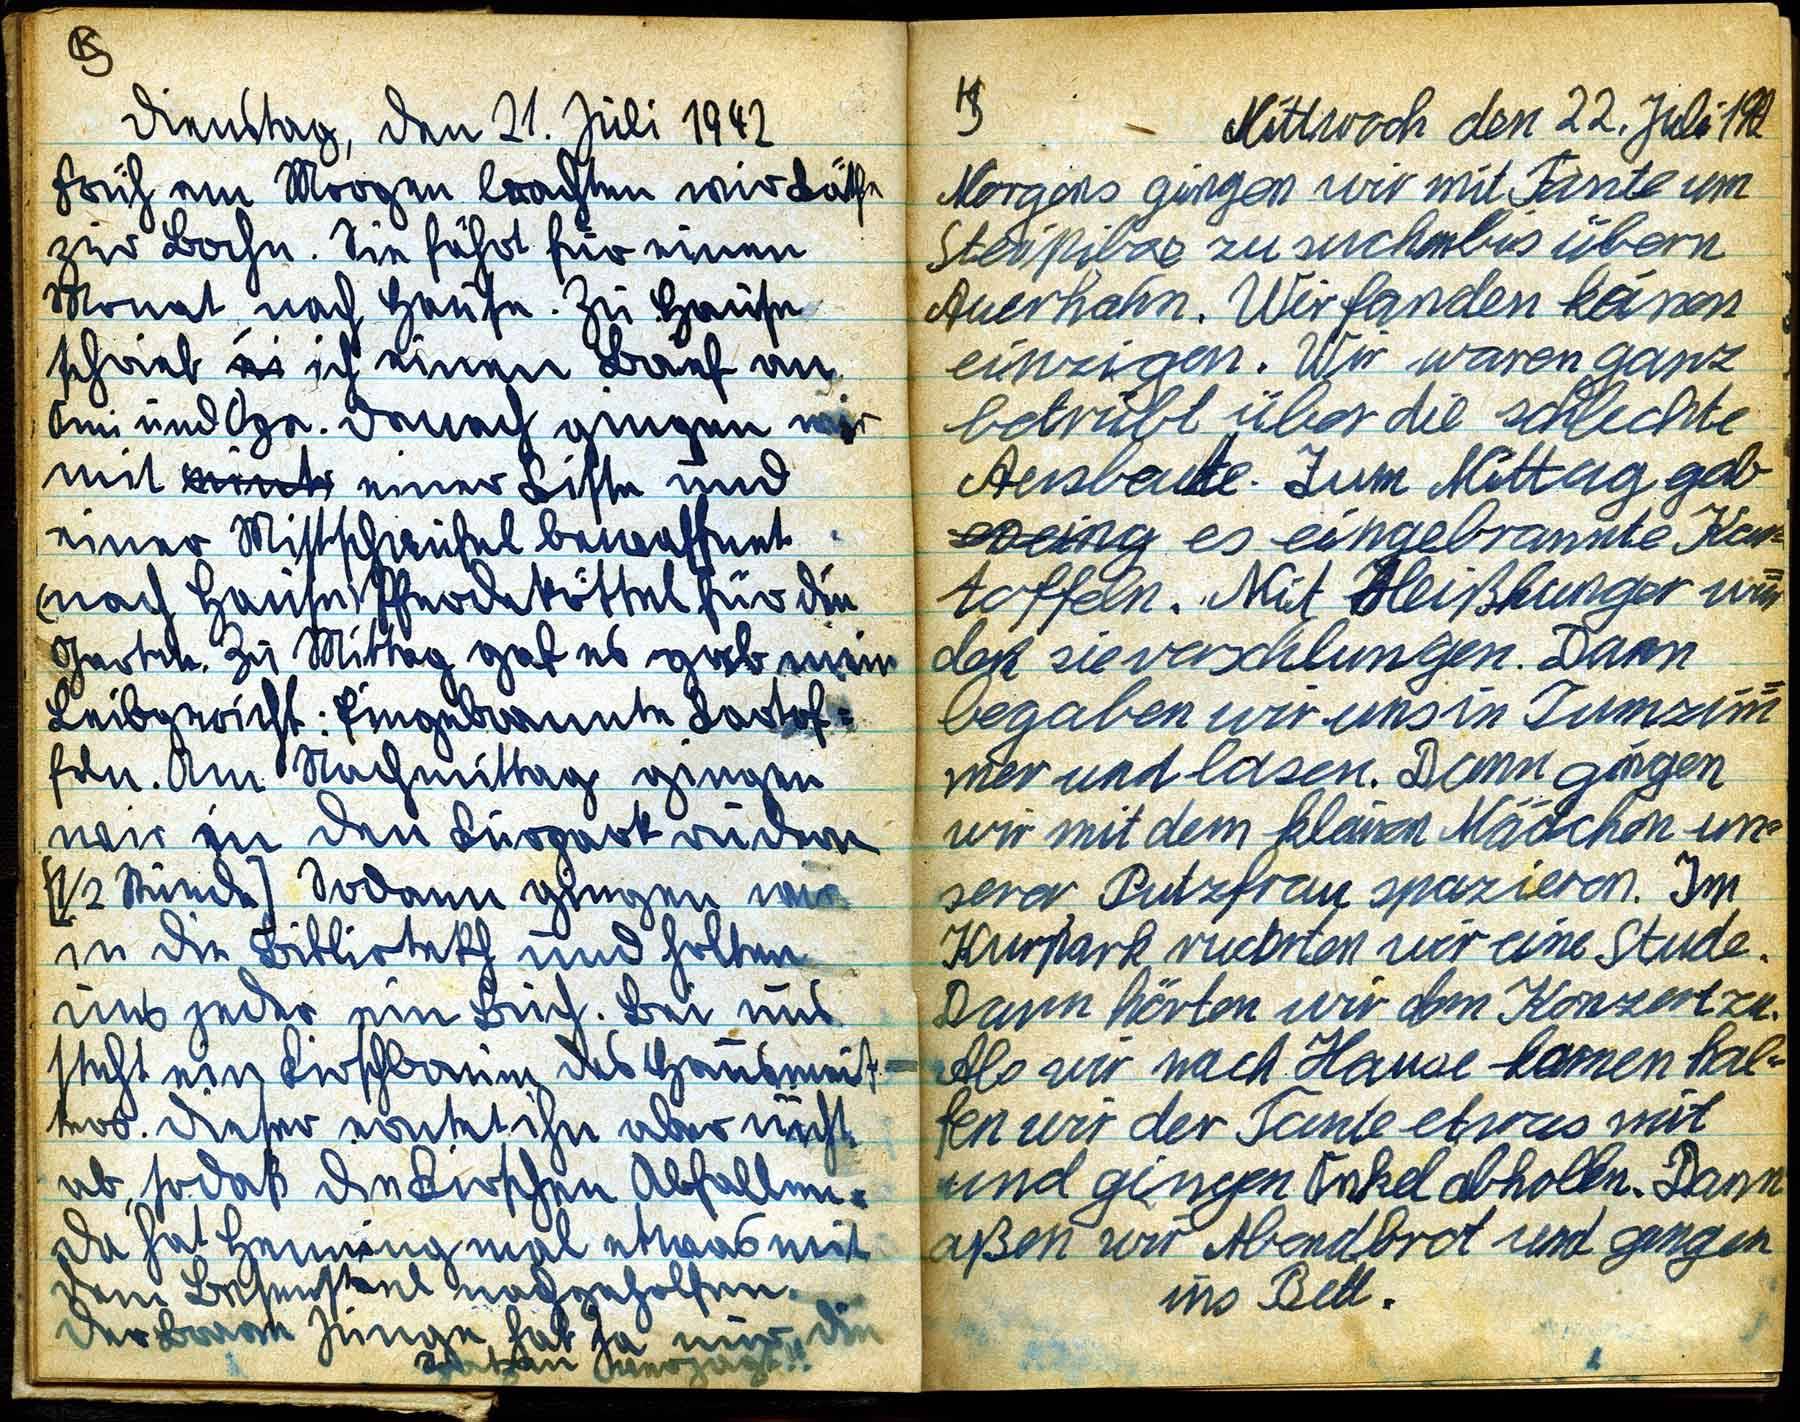 Dienstag, den 21. Juli 1942
Früh am Morgen brachten wir Käthe
zur Bahn. Sie fährt für einen
Monat nach Hause. Zu Hause
schrieb ich einen Brief an
Omi und Opa. Danach gingen wir
mit einer Kiste und
einer Mistschaufel bewaffnet
(nach Hause) Pferdeköttel für den
Garten. Zu Mittag gab es grob mein
Leibgericht: Eingebrannte Kartof=
feln. Am Nachmittag gingen
wir in den Kurpark rudern
[1/2 Stunde] Sodann gingen wir
in die Bibliotekh und holten
uns jeder ein Buch. Bei uns
steht ein Kirschbaum des Hausmeis=
ters. Dieser erntet ihn aber nicht
ab, sodaß die Kirschen Abfallen.
Da hat Henning mal etwas mit
dem Besenstiel nachgeholfen.
Der Junge hat ja nur die
verjagt!!
Mittwoch den 22. Juli 1942
Morgens gingen wir mit Tante um
Steinpilze zu suchen bis übern
Auerhahn. Wir fanden keinen
einzigen. Wir waren ganz
betrübt über die schlechte
Ausbeute. Zum Mittag gab
es eingebrannte Kar=
toffeln. Mit Heißhunger wur=
den sie verschlungen. Dann
begaben wir uns in Zimm=
mer und lasen. Dann gingen
wir mit dem kleinen Mädchen un=
serer Putzfrau spazieren. Im
Kurpark ruderten wir eine Stude.
Dann hörten wir dem Konzert zu.
Als wir nach Hause kamen hal=
fen wir der Tante etwas mit
und gingen Onkel abholen. Dann
aßen wir Abendbrot und gingen
ins Bett.